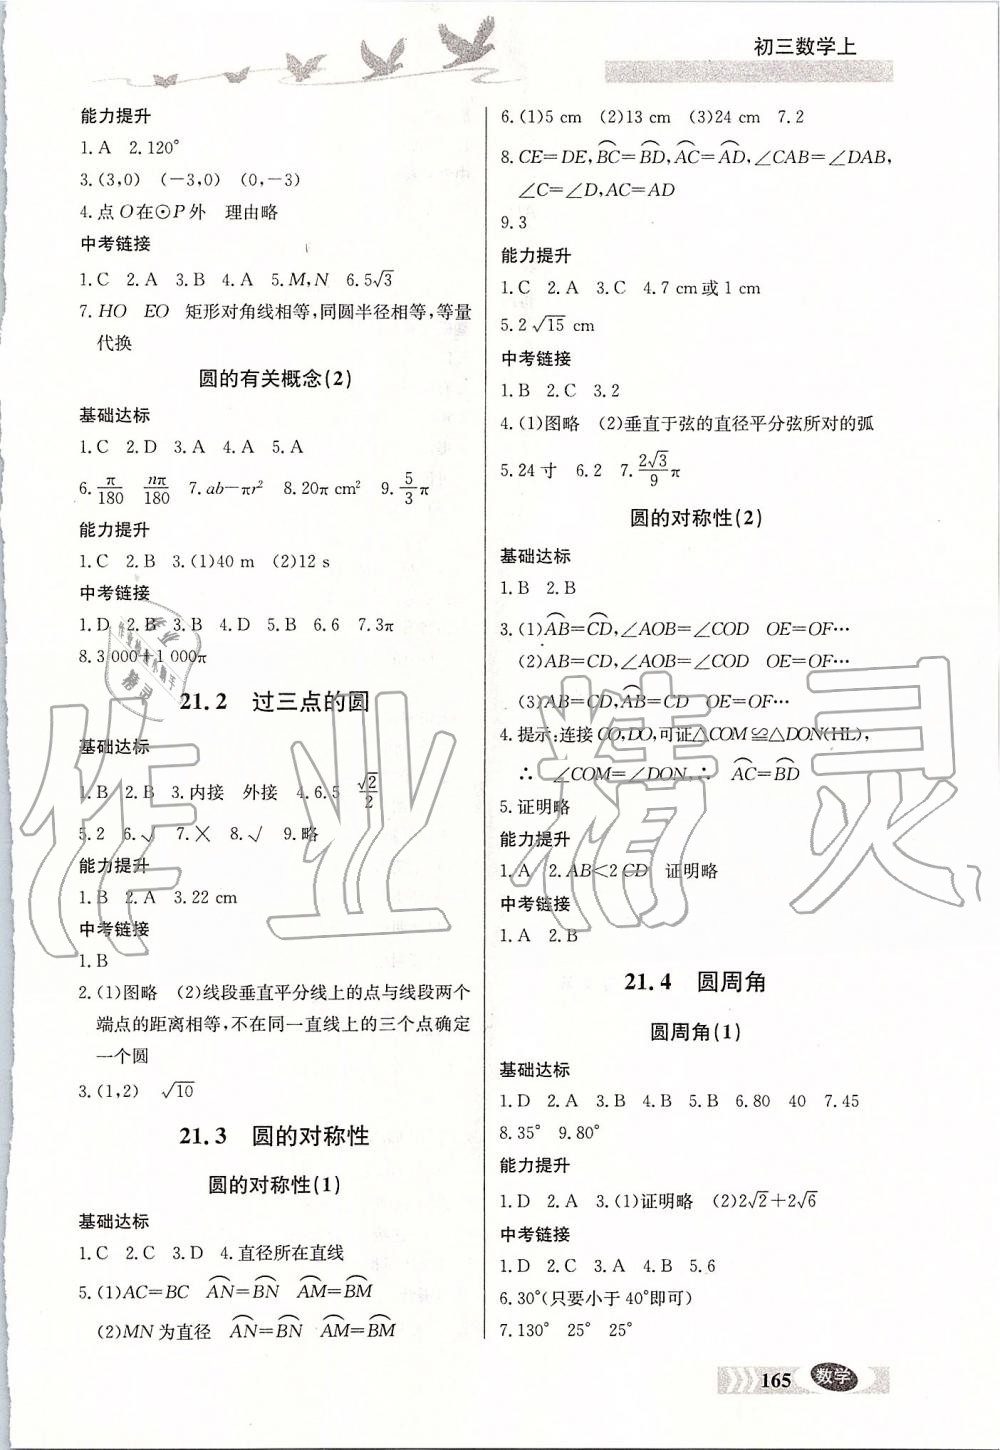 初三数学上
能力提升
1.A 2.120°
3.(3,0) (-3,0) (0,-3)
4.点O在⊙P外 理由略
中考链接
1.C 2.A 3.B 4.A 5.M,N 6.5√3
7. HO EO 矩形对角线相等,同圆半径相等,等量
代换
圆的有关概念(2)
基础达标
1.C 2.D 3.A 4.A 5.A
6.π/180 nπ/180 7.ab-πr² 8.20π cm² 9.5/3π
能力提升
1.C 2.B 3.(1)40 m (2)12 s
中考链接
1.D 2.B 3.B 4.D 5.B 6.6 7.3π
8.3 000+1 000π
21.2 过三点的圆
基础达标
1.B 2.B 3.内接 外接 4.6.5 √2/2
5.2 6.√ 7.× 8.√ 9.略
能力提升
1.B 2.A 3.22 cm
中考链接
1.B
2.(1)图略 (2)线段垂直平分线上的点与线段两个
端点的距离相等,不在同一直线上的三个点确定
一个圆
3.(1,2) √10
21.3 圆的对称性
圆的对称性(1)
基础达标
1.C 2.C 3.D 4.直径所在直线
5.(1)AC=BC ⌒AN=⌒BN ⌒AM=⌒BM
(2)MN为直径 ⌒AN=⌒BN ⌒AM=⌒BM
6.(1)5 cm (2)13 cm (3)24 cm 7.2
8.CE=DE,⌒BC=⌒BD,⌒AC=⌒AD,∠CAB=∠DAB,
∠C=∠D,AC=AD
9.3
能力提升
1.C 2.A 3.C 4.7 cm或1 cm
5.2√15 cm
中考链接
1.B 2.C 3.2
4.(1)图略 (2)垂直于弦的直径平分弦所对的弧
5.24寸 6.2 7.2√3/9π
圆的对称性(2)
基础达标
1.B 2.B
3.(1)⌒AB=⌒CD,∠AOB=∠COD OE=OF…
(2)AB=CD,∠AOB=∠COD OE=OF…
(3)AB=CD,⌒AB=⌒CD OE=OF…
4.提示:连接CO,DO,可证△COM≌△DON(HL),
∴ ∠COM=∠DON,∴ ⌒AC=⌒BD
5.证明略
能力提升
1.A 2.AB<2CD 证明略
中考链接
1.A 2.B
21.4 圆周角
圆周角(1)
基础达标
1.D 2.A 3.B 4.B 5.B 6.80 40 7.45
8.35° 9.80°
能力提升
1.D 2.A 3.(1)证明略 (2)2√2+2√6
中考链接
1.D 2.C 3.A 4.B 5.6
6.30°(只要小于40°即可)
7.130° 25° 25°
165 数学
作业精灵